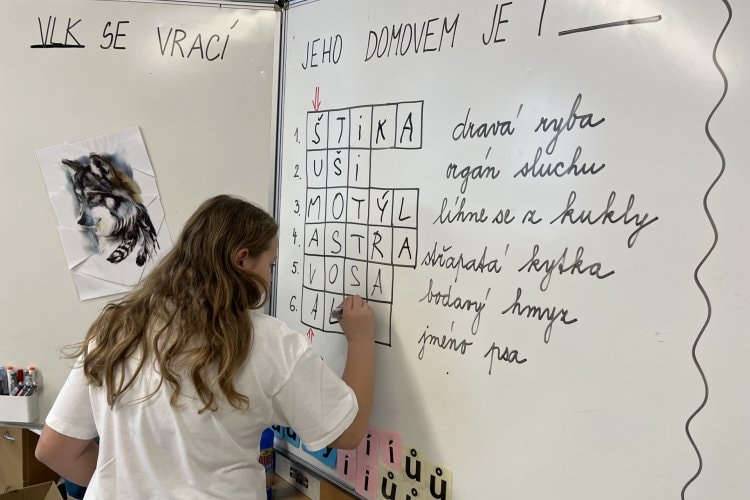 VLK SE VRACÍ
JEHO DOMOVEM JE
1. ŠTIKA dravá ryba
2. UŠI orgán sluchu
3. MOTÝL líhne se z kukly
4. ASTRA střapatá kytka
5. VOSA bodavý hmyz
6. AL jméno psa
í í ů
i ů ů
ů ů